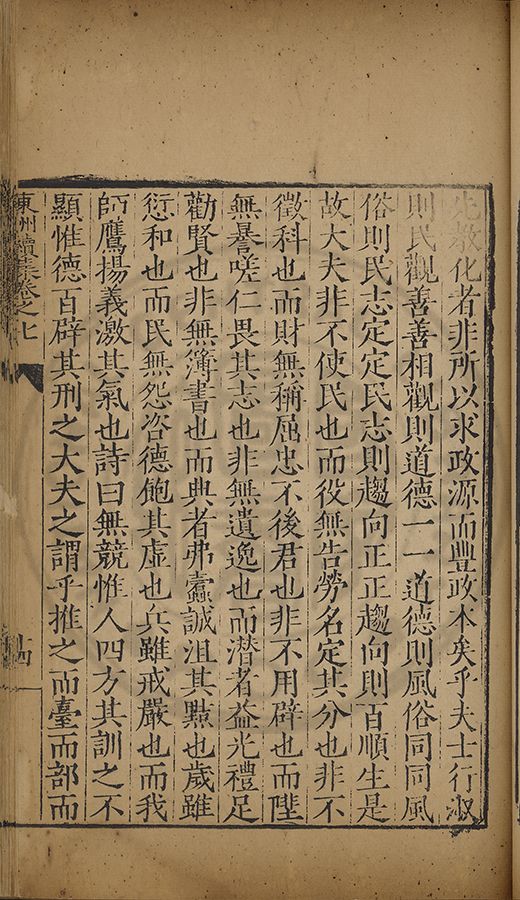 先教化者非所以求政源而豐政本矣乎夫士行淑
則民觀善善相觀則道德一一道德則風俗同同風
俗則民志定定民志則趨向正正趨向則百順生是
故大夫非不使民也而役無告勞名定其分也非不
徵科也而財無稱屈忠不後君也非不用辟也而陛
無㬥嗟仁畏其志也非無遺逸也而潛者益光禮足
勸賢也非無簿書也而典者弗蠧誠沮其黠也歲雖
愆和也而民無怨咨德飽其虛也兵雖戒嚴也而我
師鷹揚義激其氣也詩曰無競惟人四方其訓之不
顯惟德百辟其刑之大夫之謂乎推之而臺而部而
東州續集卷之七
十四